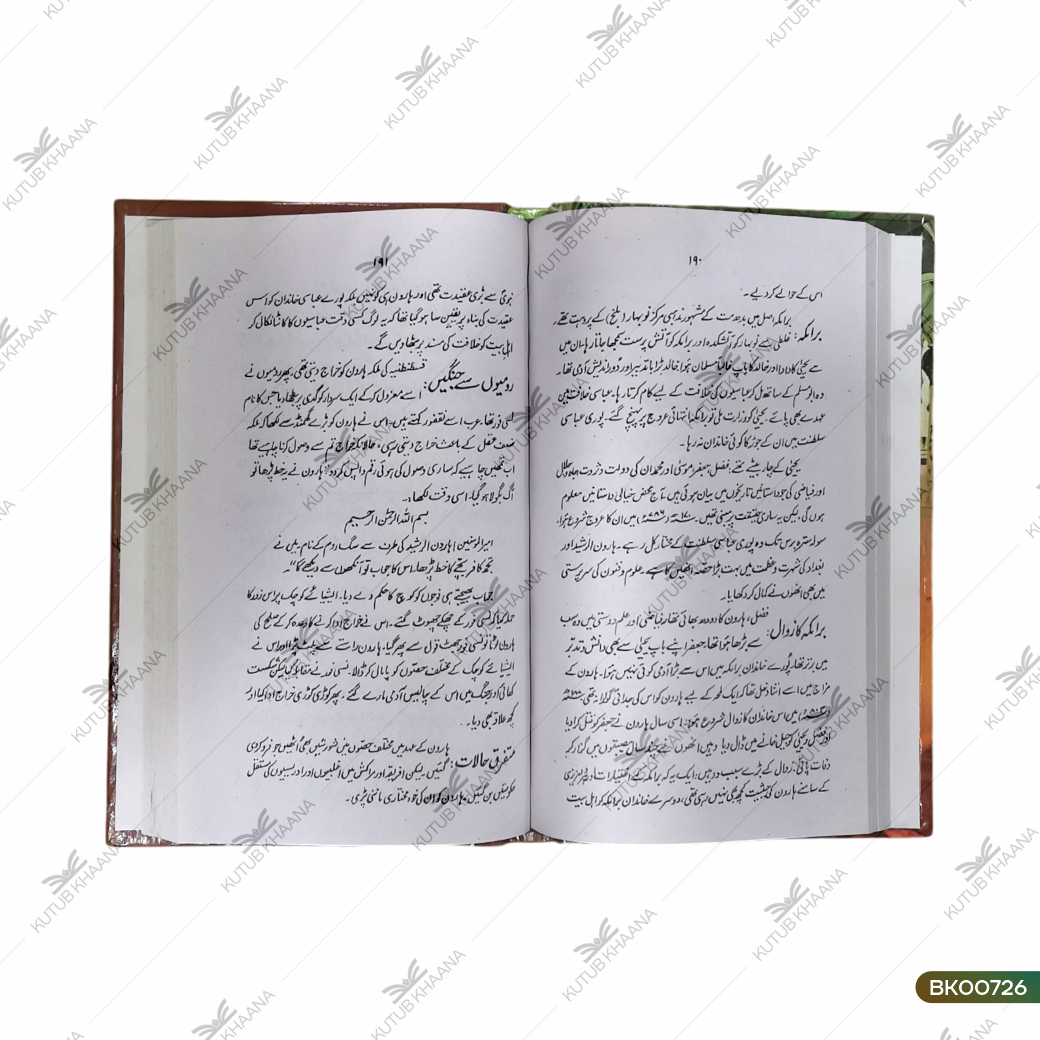 ۱۹۰
اس کے حوالے کر دیے۔
برامکہ: برامکہ اصل میں بدھ مت کے مشہور مذہبی مرکز نوبہار (بلخ) کے پروہت تھے۔
غلطی سے نوبہار کو آتشکدہ اور برامکہ کو آتش پرست سمجھا جاتا رہا۔ ان میں
سے یحییٰ کا دادا اور خالد کا باپ غالباً مسلمان ہوا۔ خالد بڑا باتدبیر اور دور اندیش آدمی تھا۔
وہ ابو مسلم کے ساتھ مل کر عباسیوں کی خلافت کے لیے کام کرتا رہا۔ عباسی خلافت میں
عہدے بھی پائے۔ یحییٰ کو وزارت ملی تو برامکہ انتہائی عروج پر پہنچ گئے۔ پوری عباسی
سلطنت میں ان کے جوڑ کا کوئی خاندان نہ رہا۔
یحییٰ کے چار بیٹے تھے، فضل، جعفر، موسیٰ اور محمد ان کی دولت و ثروت، جاہ و جلال
اور فیاضی کی جو داستانیں تاریخوں میں بیان ہوئی ہیں، آج محض خیالی داستانیں معلوم
ہوں گی، لیکن یہ ساری حقیقت پر مبنی تھیں۔ ۱۷۰ھ (۷۸۶ء) میں ان کا عروج شروع ہوا۔
سولہ سترہ برس تک وہ پوری عباسی سلطنت کے مختار کل رہے۔ ہارون الرشید اور
بغداد کی شہرت و عظمت میں بہت بڑا حصہ انھیں کا ہے۔ علوم و فنون کی سرپرستی
میں بھی انھوں نے کمال کر دکھایا۔
برامکہ کا زوال: فضل، ہارون کا دودھ بھائی تھا، فیاضی اور علم دوستی میں وہ سب
سے بڑھا ہوا تھا، جعفر اپنے باپ یحییٰ سے بھی دانش و تدبر
میں برتر تھا۔ پورے خاندان برامکہ میں اس سے بڑا آدمی کوئی نہیں ہوا۔ ہارون کے
مزاج میں اسے اتنا دخل تھا کہ ایک لمحہ کے لیے ہارون کو اس کی جدائی گوارا نہ تھی۔
میں اس خاندان کا زوال شروع ہوا۔ اسی سال ہارون نے جعفر کو قتل کرا دیا
اور فضل و یحییٰ کو جیل خانے میں ڈال دیا۔ وہیں انھوں نے چند سال مصیبتوں میں گزار کر
وفات پائی۔ زوال کے بڑے سبب دو ہیں، ایک یہ کہ برامکہ کے اختیارات اور اولوالعزمی
کے سامنے ہارون کی حیثیت کچھ بھی نہیں رہی تھی، دوسرے خاندان برامکہ کو اہل بیت
۱۹۱
نبویؐ سے بڑی عقیدت تھی اور ہارون ہی کو نہیں بلکہ پورے عباسی خاندان کو اس
عقیدت کی بناء پر یقین سا ہو گیا تھا کہ یہ لوگ کسی وقت عباسیوں کا کانٹا نکال کر
اہل بیت کو خلافت کی مسند پر بٹھا دیں گے۔
رومیوں سے جنگیں: قسطنطنیہ کی ملکہ ہارون کو خراج دیتی تھی، پھر رومیوں نے
اسے معزول کر کے ایک سردار کو گدی پر بٹھا دیا جس کا نام
نسی فور تھا۔ عرب اسے نقفور کہتے ہیں۔ اس نے ہارون کو بڑے گھمنڈ سے لکھا کہ ملکہ
ضعف عقل کے باعث خراج دیتی رہی، حالانکہ خراج تم سے وصول کرنا چاہیے تھا
اب تمھیں چاہیے کہ ساری وصول کی ہوئی رقم واپس کر دو۔ ہارون نے یہ خط پڑھا تو
آگ بگولا ہو گیا، اسی وقت لکھا۔
بسم اللہ الرحمٰن الرحیم
امیر المومنین ہارون الرشید کی طرف سے سگ روم کے نام۔ میں نے
تجھ کافر بچے کا خط پڑھا، اس کا جواب تو آنکھوں سے دیکھے گا"۔
جواب بھیجتے ہی فوجوں کو کوچ کا حکم دے دیا۔ ایشیائے کوچک پر اس زور کا
حملہ کیا کہ نسی فور کے چھکے چھوٹ گئے۔ اس نے خراج ادا کرنے کا وعدہ کر کے صلح کی
ہارون لوٹا تو نسی فور جھٹ قول سے پھر گیا۔ ہارون راستے سے پلٹ پڑا اور اس نے
ایشیائے کوچک کے مختلف حصوں کو پامال کر ڈالا۔ نسی فور نے مقابلہ کیا لیکن شکست
کھائی اور جنگ میں اس کے چالیس آدمی مارے گئے۔ پھر کوڑی کوڑی خراج ادا کیا اور
کچھ علاقہ بھی دیا۔
متفرق حالات: ہارون کے عہد میں مختلف حصوں میں شورشیں بھی اٹھیں جو فرو کر دی
گئیں۔ لیکن افریقہ اور مراکش میں اغلبیوں اور ادریسیوں کی مستقل
حکومتیں بن گئیں۔ ہارون کو ان کی خودمختاری ماننی پڑی۔
KUTUB KHAANA
BK00726